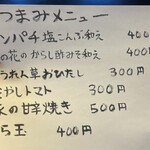 つまみメニュー
ンパチ塩こんぶ和え 400
の花のからし酢みそ和え 400
うれん草おひたし 300円
やしトマト 300円
の甘辛焼き 500円
ら玉 400円